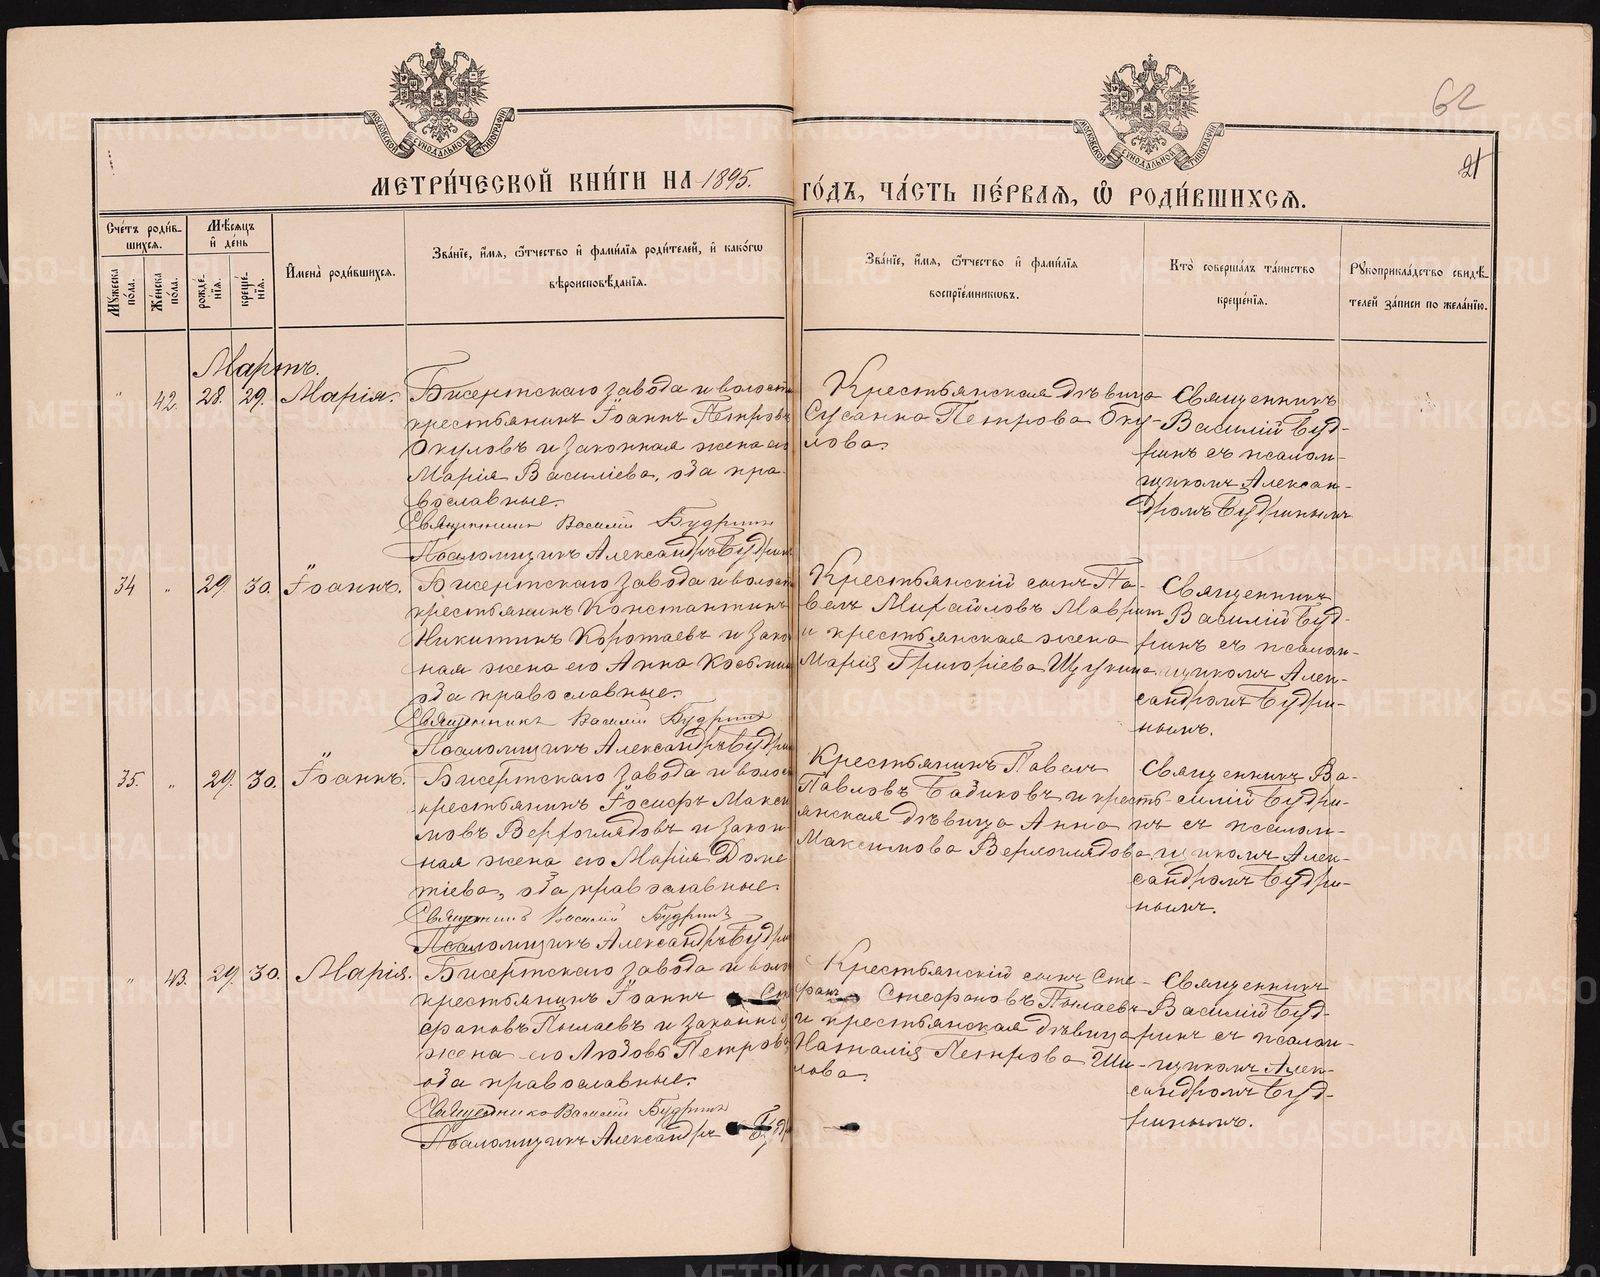 62
21
МОСКОВСКОЙ СУНОДАЛЬНОЙ ТИПОГРАФІИ
МОСКОВСКОЙ СУНОДАЛЬНОЙ ТИПОГРАФІИ
МЕТРИ́ЧЕСКОЙ КНИ́ГИ НА 1895. ГО́ДЪ, ЧА́СТЬ ПЕ́РВАѦ, Ѽ РОДИ́ВШИХСѦ.
Сче́тъ роди́в-
шихсѧ.
Мꙋжеска по́ла.
Же́нска по́ла.
Мѣ́сѧцъ
и҆ де́нь
рожде́-
нїѧ.
креще́-
нїѧ.
И҆мена̀ роди́вшихсѧ.
Зва́нїе, и҆́мѧ, ѻ҆́тчество и҆ фами́лїѧ роди́телей, и҆ како́гѡ
вѣроисповѣ́данїѧ.
Зва́нїе, и҆́мѧ, ѻ҆́тчество и҆ фами́лїѧ
воспрїе́мникѡвъ.
Кто̀ соверша́лъ та́инство
креще́нїѧ.
Рꙋкоприкла́дство свидѣ́-
телей за́писи по жела́нїю.
Мартъ.
" 42. 28. 29. Марія.
Бисертскаго завода и волости
крестьянинъ Іоаннъ Петровъ
Окуловъ и законная жена его
Марія Василіева, оба пра-
вославные.
Священникъ Василій Будринъ
Псаломщикъ Александръ Будринъ
Крестьянская дѣвица
Сусанна Петрова Оку-
лова.
Священникъ
Василій Буд-
ринъ съ псалом-
щикомъ Алексан-
дромъ Будринымъ
34 " 29. 30. Іоаннъ.
Бисертскаго завода и волости
крестьянинъ Константинъ
Никитинъ Коротаевъ и закон
ная жена его Анна Косьмина
оба православные.
Священникъ Василій Будринъ
Псаломщикъ Александръ Будринъ
Крестьянскій сынъ Па-
велъ Михайловъ Мавринъ
и крестьянская жена
Марія Григоріева Щукина
Священникъ
Василій Буд-
ринъ съ псалом-
щикомъ Алек-
сандромъ Будри-
нымъ.
35. " 29. 30. Іоаннъ.
Бисертскаго завода и волости
крестьянинъ Іосифъ Макси
мовъ Верхоглядовъ и закон-
ная жена его Марія Доме
тіева, оба православные.
Священникъ Василій Будринъ
Псаломщикъ Александръ Будринъ
Крестьянинъ Павелъ
Павловъ Бадиковъ и кресть-
янская дѣвица Анна
Максимова Верхоглядова
Священникъ Ва-
силій Будри-
нъ съ псалом-
щикомъ Алек-
сандромъ Будри-
нымъ.
" 43. 29. 30. Марія.
Бисертскаго завода и воло
крестьянинъ Іоаннъ Сте
фановъ Пылаевъ и законная
жена его Любовь Петрова
оба православные.
Священникъ Василій Будринъ
Псаломщикъ Александръ Будр
Крестьянскій сынъ Сте-
фанъ Стефановъ Пылаевъ
и крестьянская дѣвица
Наталія Петрова Ши-
лова.
Священникъ
Василій Буд-
ринъ съ псалом-
щикомъ Алек-
сандромъ Буд-
ринымъ.
METRIKI.GASO-URAL.RU